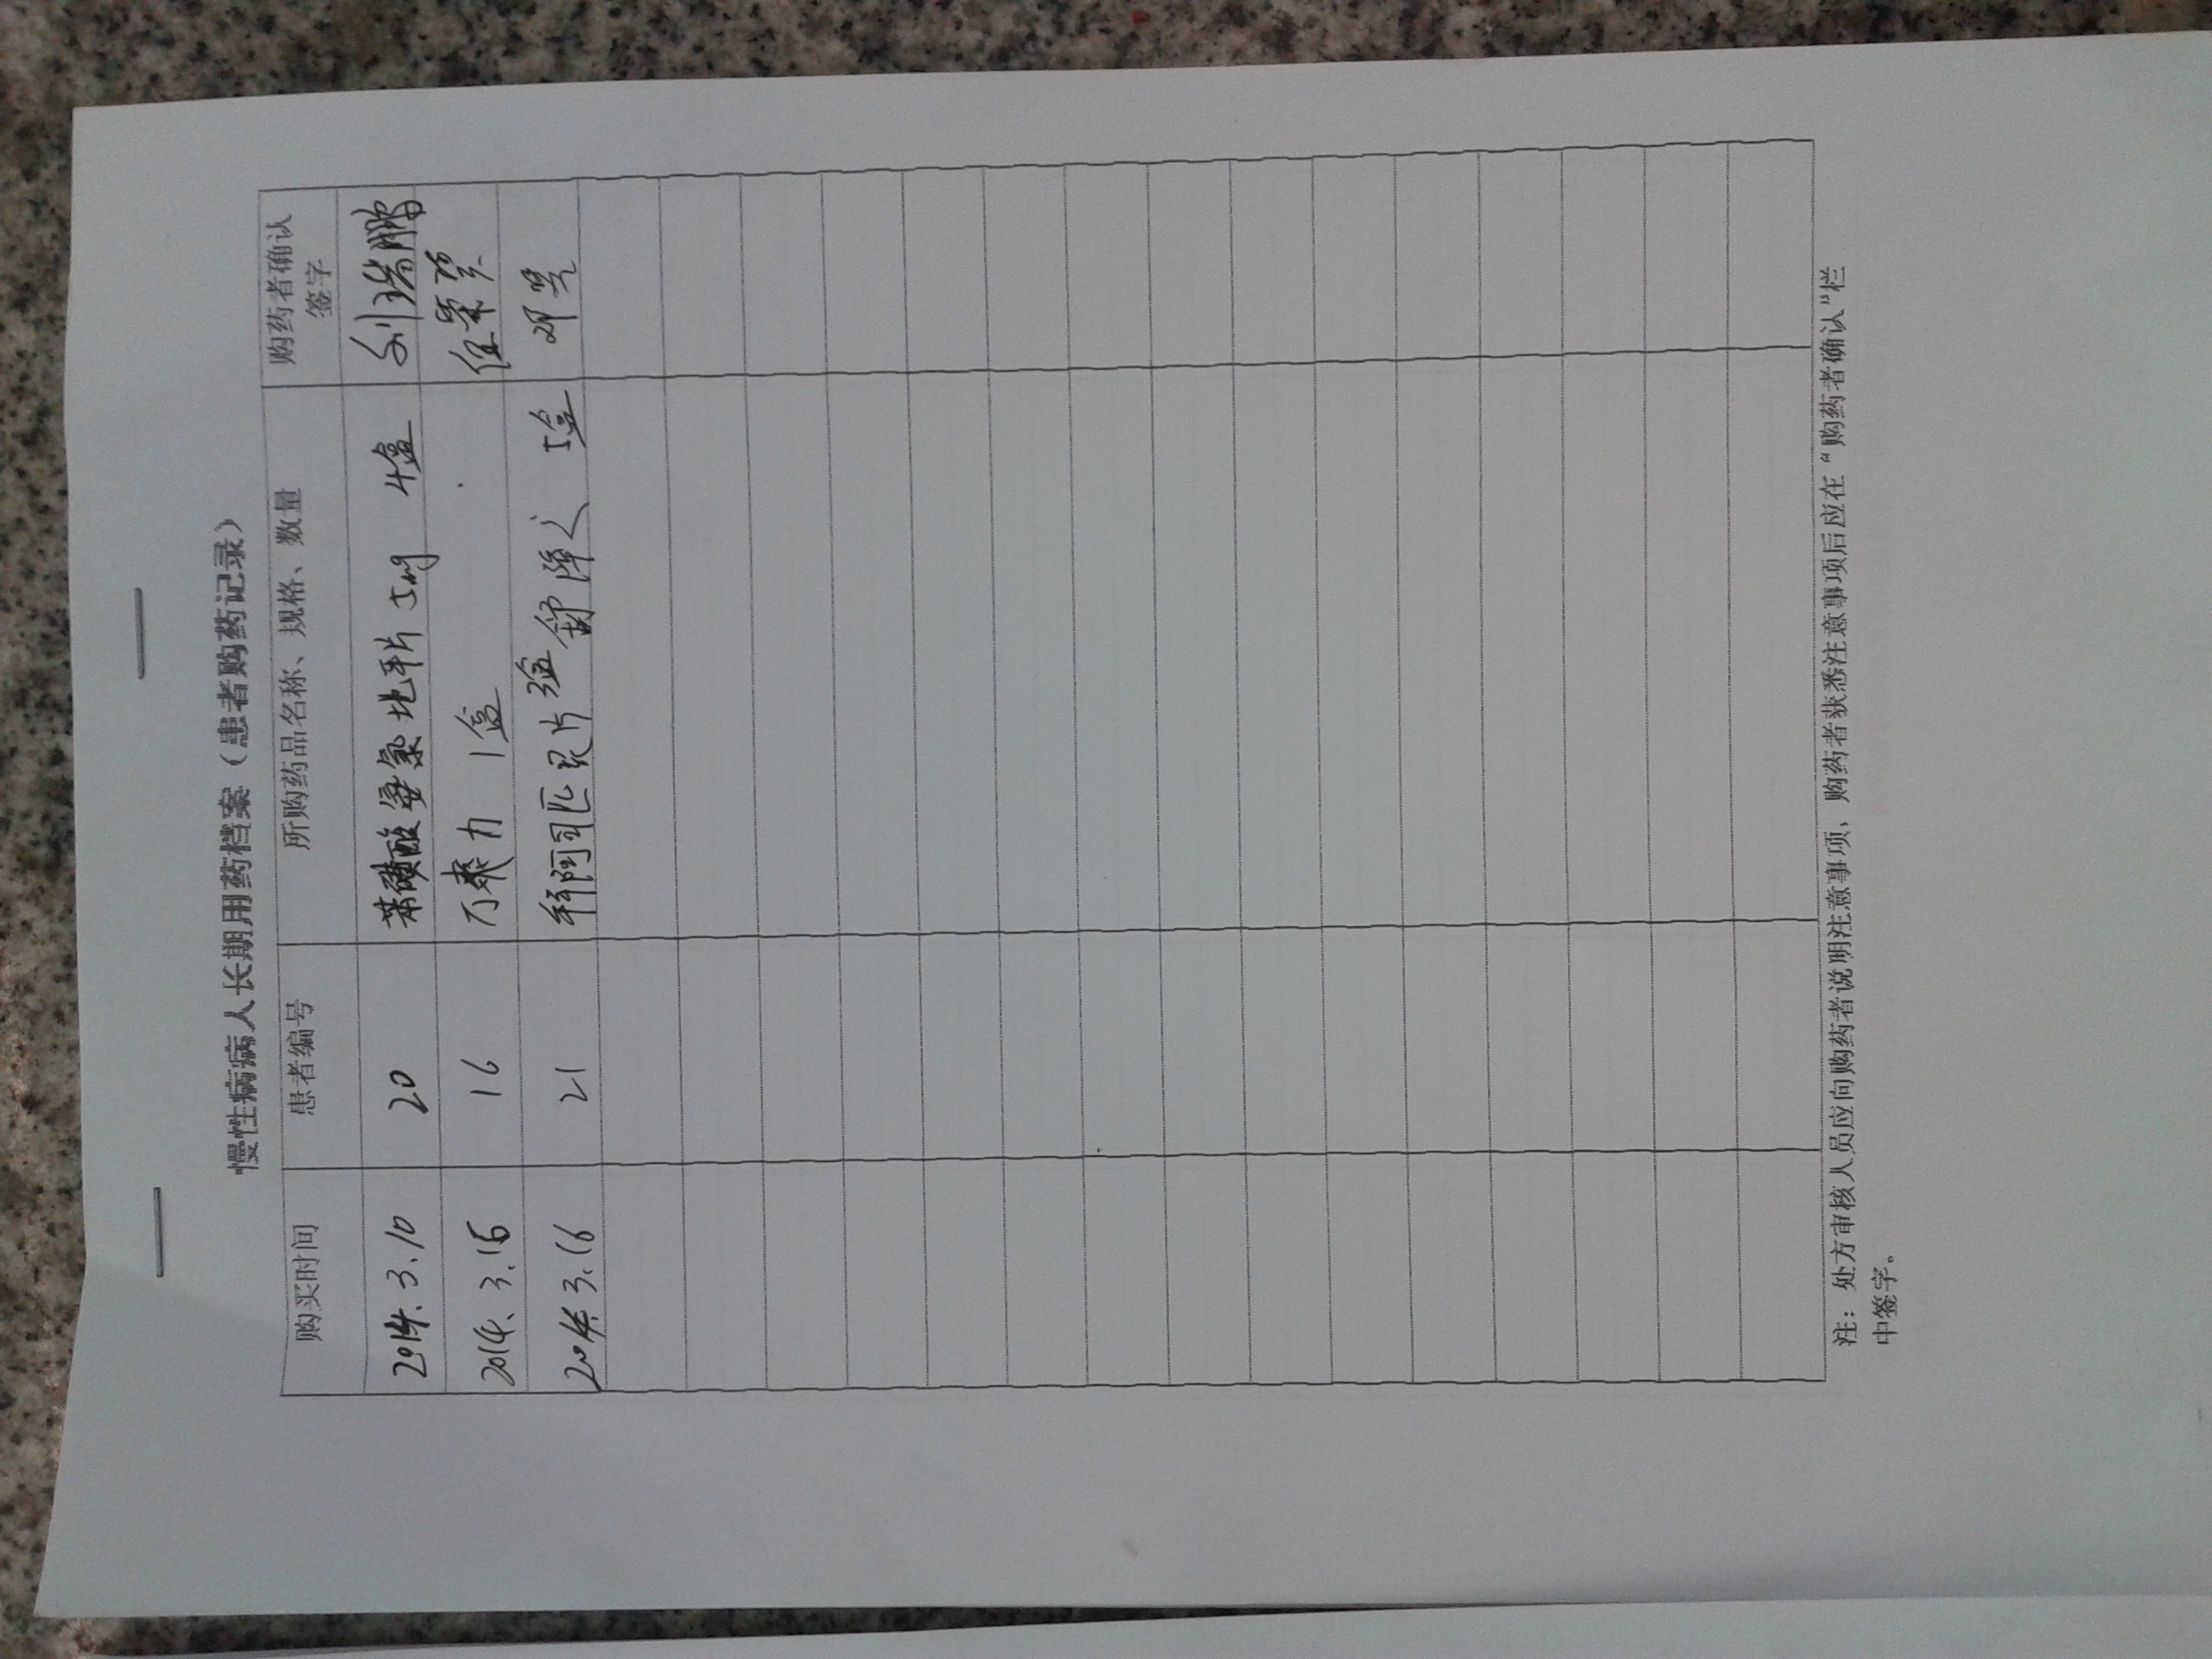 慢性病病人长期用药档案（患者购药记录）
购买时间 患者编号 所购药品名称、规格、数量 购药者确认签字
2014.3.10 20 苯磺酸氨氯地平片 5mg 4盒 刘瑞鹏
2014.3.16 16 万爽力 1盒
2014.3.16 21 拜阿司匹灵片 3盒 舒降之 5盒 邓昊
注：处方审核人员应向购药者说明注意事项，购药者获悉注意事项后应在“购药者确认”栏
中签字。